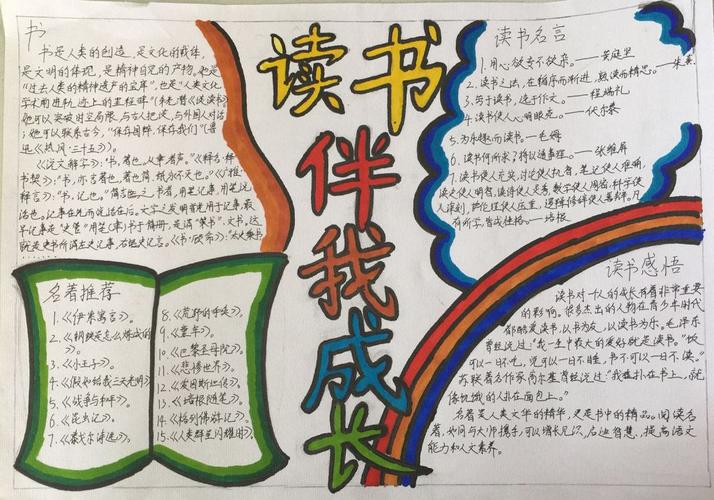 读书
伴
我
成
长
书
书是人类的创造,是文化的载体,
是文明的体现,是精神自见的产物。他是
“过去人类的精神遗产的宝库”,也是“人类文化
学术前进
她可以突破时空局限,与古人把谈,与外国人对话
;她可以联系古今,“保存国粹,保存我们”(鲁
迅《热风·三十五》)。
《说文解字》:“书,著也。从聿者声。”《释名·释
书契》:“书,亦言著也,著也简、纸永不灭也。”
释言》:“书,记也。”
话也。记事在先而说话在后。文字之发明首先用于记事,最
早记事是“史官”用笔(聿)书于简册,是谓“
就是史书所谓左史记事,右史记言。
名著推荐
1.《伊索寓言》。
2.《钢铁是怎么炼成的
》。
3.《小王子》。
4.《假如给我三天光明》
5.《战争与和平》。
6.《昆虫记》。
7.《泰戈尔诗选》。
8.《荒野的呼唤》。
9.《童年》。
10.《巴黎圣母院》。
11.《悲惨世界》。
12.《爱因斯坦传》。
13.《培根随笔》。
14.《格列佛游记》。
15.《人类群星闪耀时》。
读书名言
1.用心欲专不欲杂。——黄庭坚
2.读书之法,在循序而渐进,熟读而精思。——朱熹
3.劳于读书,逸于作文。——程端礼
4.读书使人心明眼亮。——伏尔泰
5.为乐趣而读书。——毛姆
6.读书何所求?将以通事理。——张维屏
7.读书使人充实,讨论使人机智,笔记使人准确,
读史使人明智,读诗使人灵秀,数学使人周密,科学使
人深刻,伦理使人庄重,逻辑修辞使人善辩。凡
有所学,皆成性格。——培根
读书感悟
读书对一个人的成长有着非常重要
的影响。很多杰出的人物在青少年时代
都酷爱读书,以书为友,以读书为乐。毛泽东
曾经说过:“我一生中最大的爱好就是读书。”“饭
可以一日不吃,觉可以一日不睡,书不可以一日不读。”
苏联著名作家高尔基曾经说过:“我扑在书上,就
像饥饿的人扑在面包上。”
名著是人类文华的精华,更是书中的精品。阅读名
著,如同与大师携手,可以增长见识,启迪智慧,提高语文
能力和人文素养。